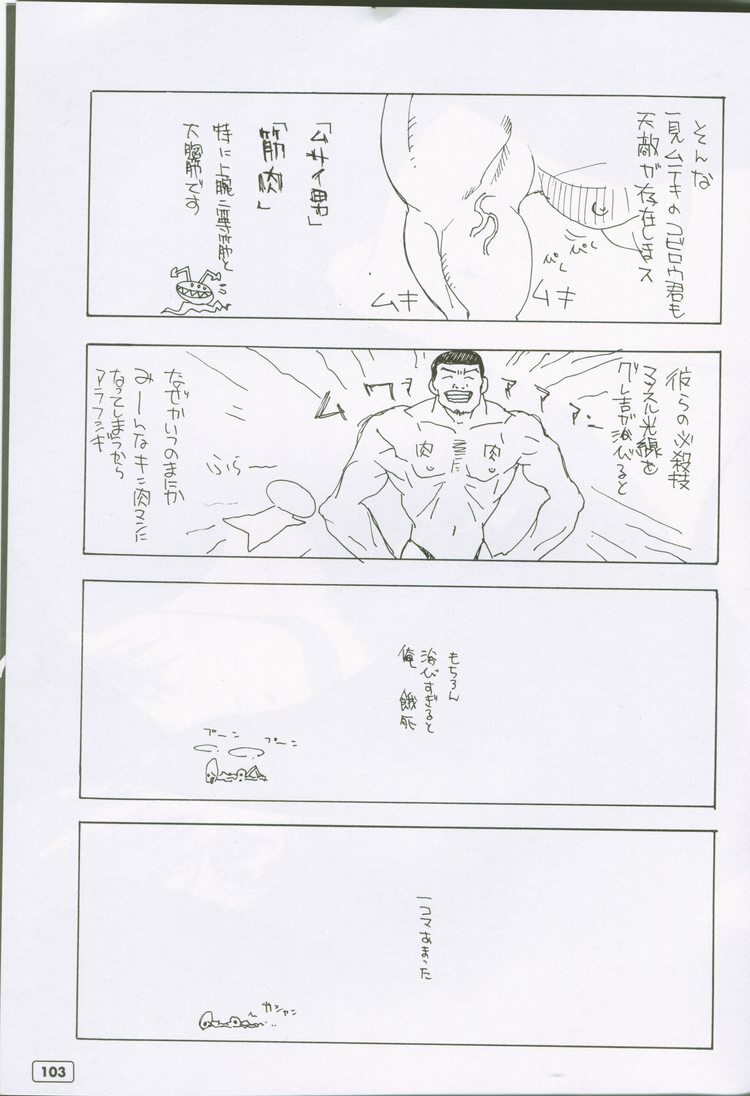 そんな
一見ムテキのコビロウ君も
天敵が存在しまス
ぴく
ぴく
ムキ
ムキ
「ムサイ男」
「筋肉」
特に上腕二等筋と
大胸筋です
彼らの必殺技
マッスル光線を
グレ吉が浴びると
ムワァアアアン
肉
肉
ふら〜
なぜかいつのまにか
み〜んなキン肉マンに
なってしまうから
アラフシギ
もちろん
浴びすぎると
俺 餓死
プーン
プーン
一コマあまった
カシャン
103